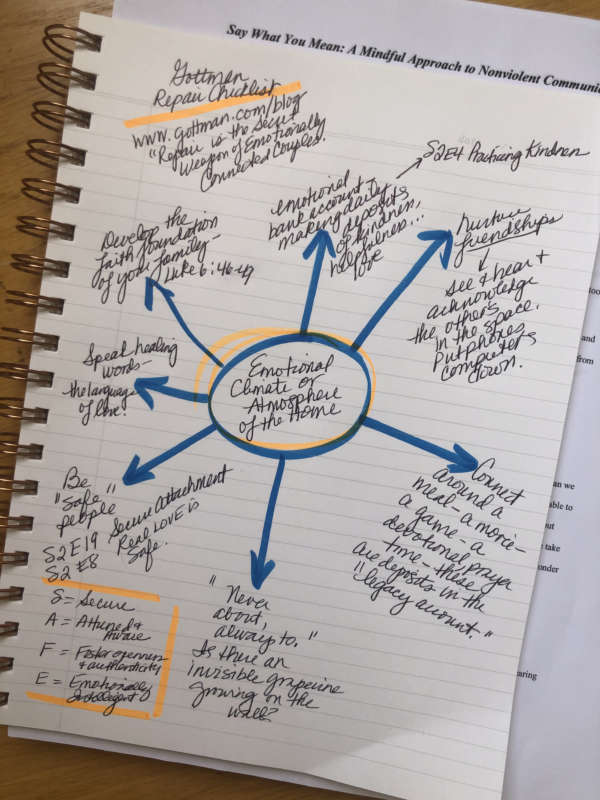 Say What You Mean: A Mindful Approach to Nonviolent Communic
Gottman
Repair Checklist
www.gottman.com/blog
"Repair is the Secret
Weapon of Emotionally
Connected Couples."
emotional
bank account -
making daily
deposits
of kindness,
helpfulness...
love
S2E4 Practicing Kindness
Nurture
friendships
See & hear &
acknowledge
the others
in the space.
Put phones,
computers
down.
Develop the
faith foundation
of your family -
Luke 6:46-49
Speak healing
words -
the language
of love
Emotional
Climate or
Atmosphere
of the Home
Be
"safe"
people
S2E19
S2E8
Secure Attachment
Real LOVE is
Safe.
S = Secure
A = Attuned &
Aware
F = Foster openness
& authenticity
E = Emotionally
Intelligent
"Never
about,
always to."
Is there an
invisible grapevine
growing on the
wall?
Connect
around a
meal - a movie -
a game - a
devotional prayer
time - these
are deposits in the
"legacy account."
and
from
an we
able to
out
take
onder
aring